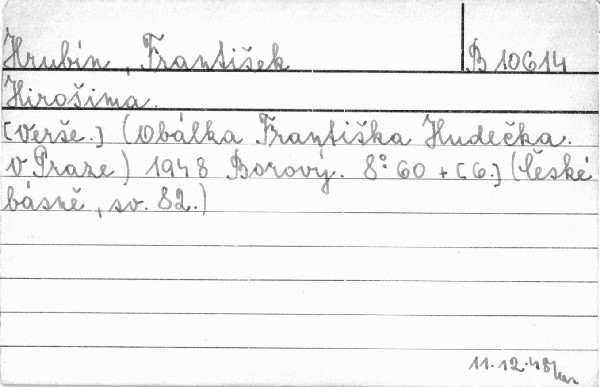 Hrubín, František B 10614
Hirošima.
[Verše.] (Obálka Františka Hudečka.
V Praze) 1948 Borový. 8° 60 + [6.] (České
básně, sv. 82.)
11.12.48